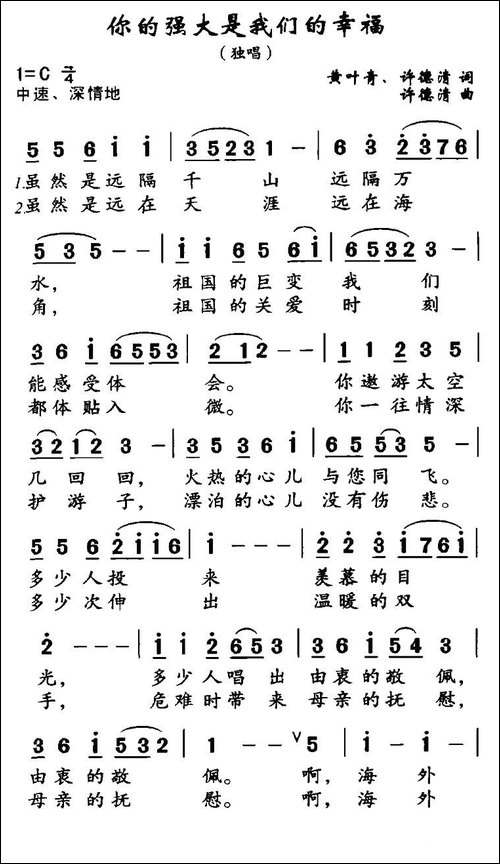 你的强大是我们的幸福
（独唱）
1=C 2/4 黄叶青、许德清 词
中速、深情地 许德清 曲
5 5 6 i i | 3 5 2 3 1 - | 6 3 2 3 7 6 |
1.虽然是远隔千山远隔万
2.虽然是远在天涯远在海
5 3 5 - - | i i 6 5 6 i | 6 5 3 2 3 - |
水，祖国的巨变我们
角，祖国的关爱时刻
3 6 i 6 5 5 3 | 2 1 2 - - | 1 1 2 3 5 |
能感受体会。你遨游太空
都体贴入微。你一往情深
3 2 1 2 3 - | 3 5 3 6 i | 6 5 5 3 5 - |
几回回，火热的心儿与您同飞。
护游子，漂泊的心儿没有伤悲。
5 5 6 2 i i 6 | i - - - | 2 2 3 i 7 6 i |
多少人投来羡慕的目
多少次伸出温暖的双
2 - - - | i i 2 6 5 3 | 3 6 i 5 4 3 |
光，多少人唱出由衷的敬佩，
手，危难时带来母亲的抚慰，
3 6 i 5 3 2 | 1 - - V 5 | i - i - |
由衷的敬佩。啊，海外
母亲的抚慰。啊，海外